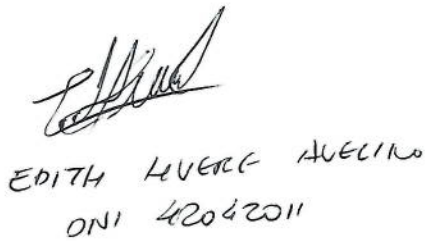 EDITH AVELINO
DNI 42042011